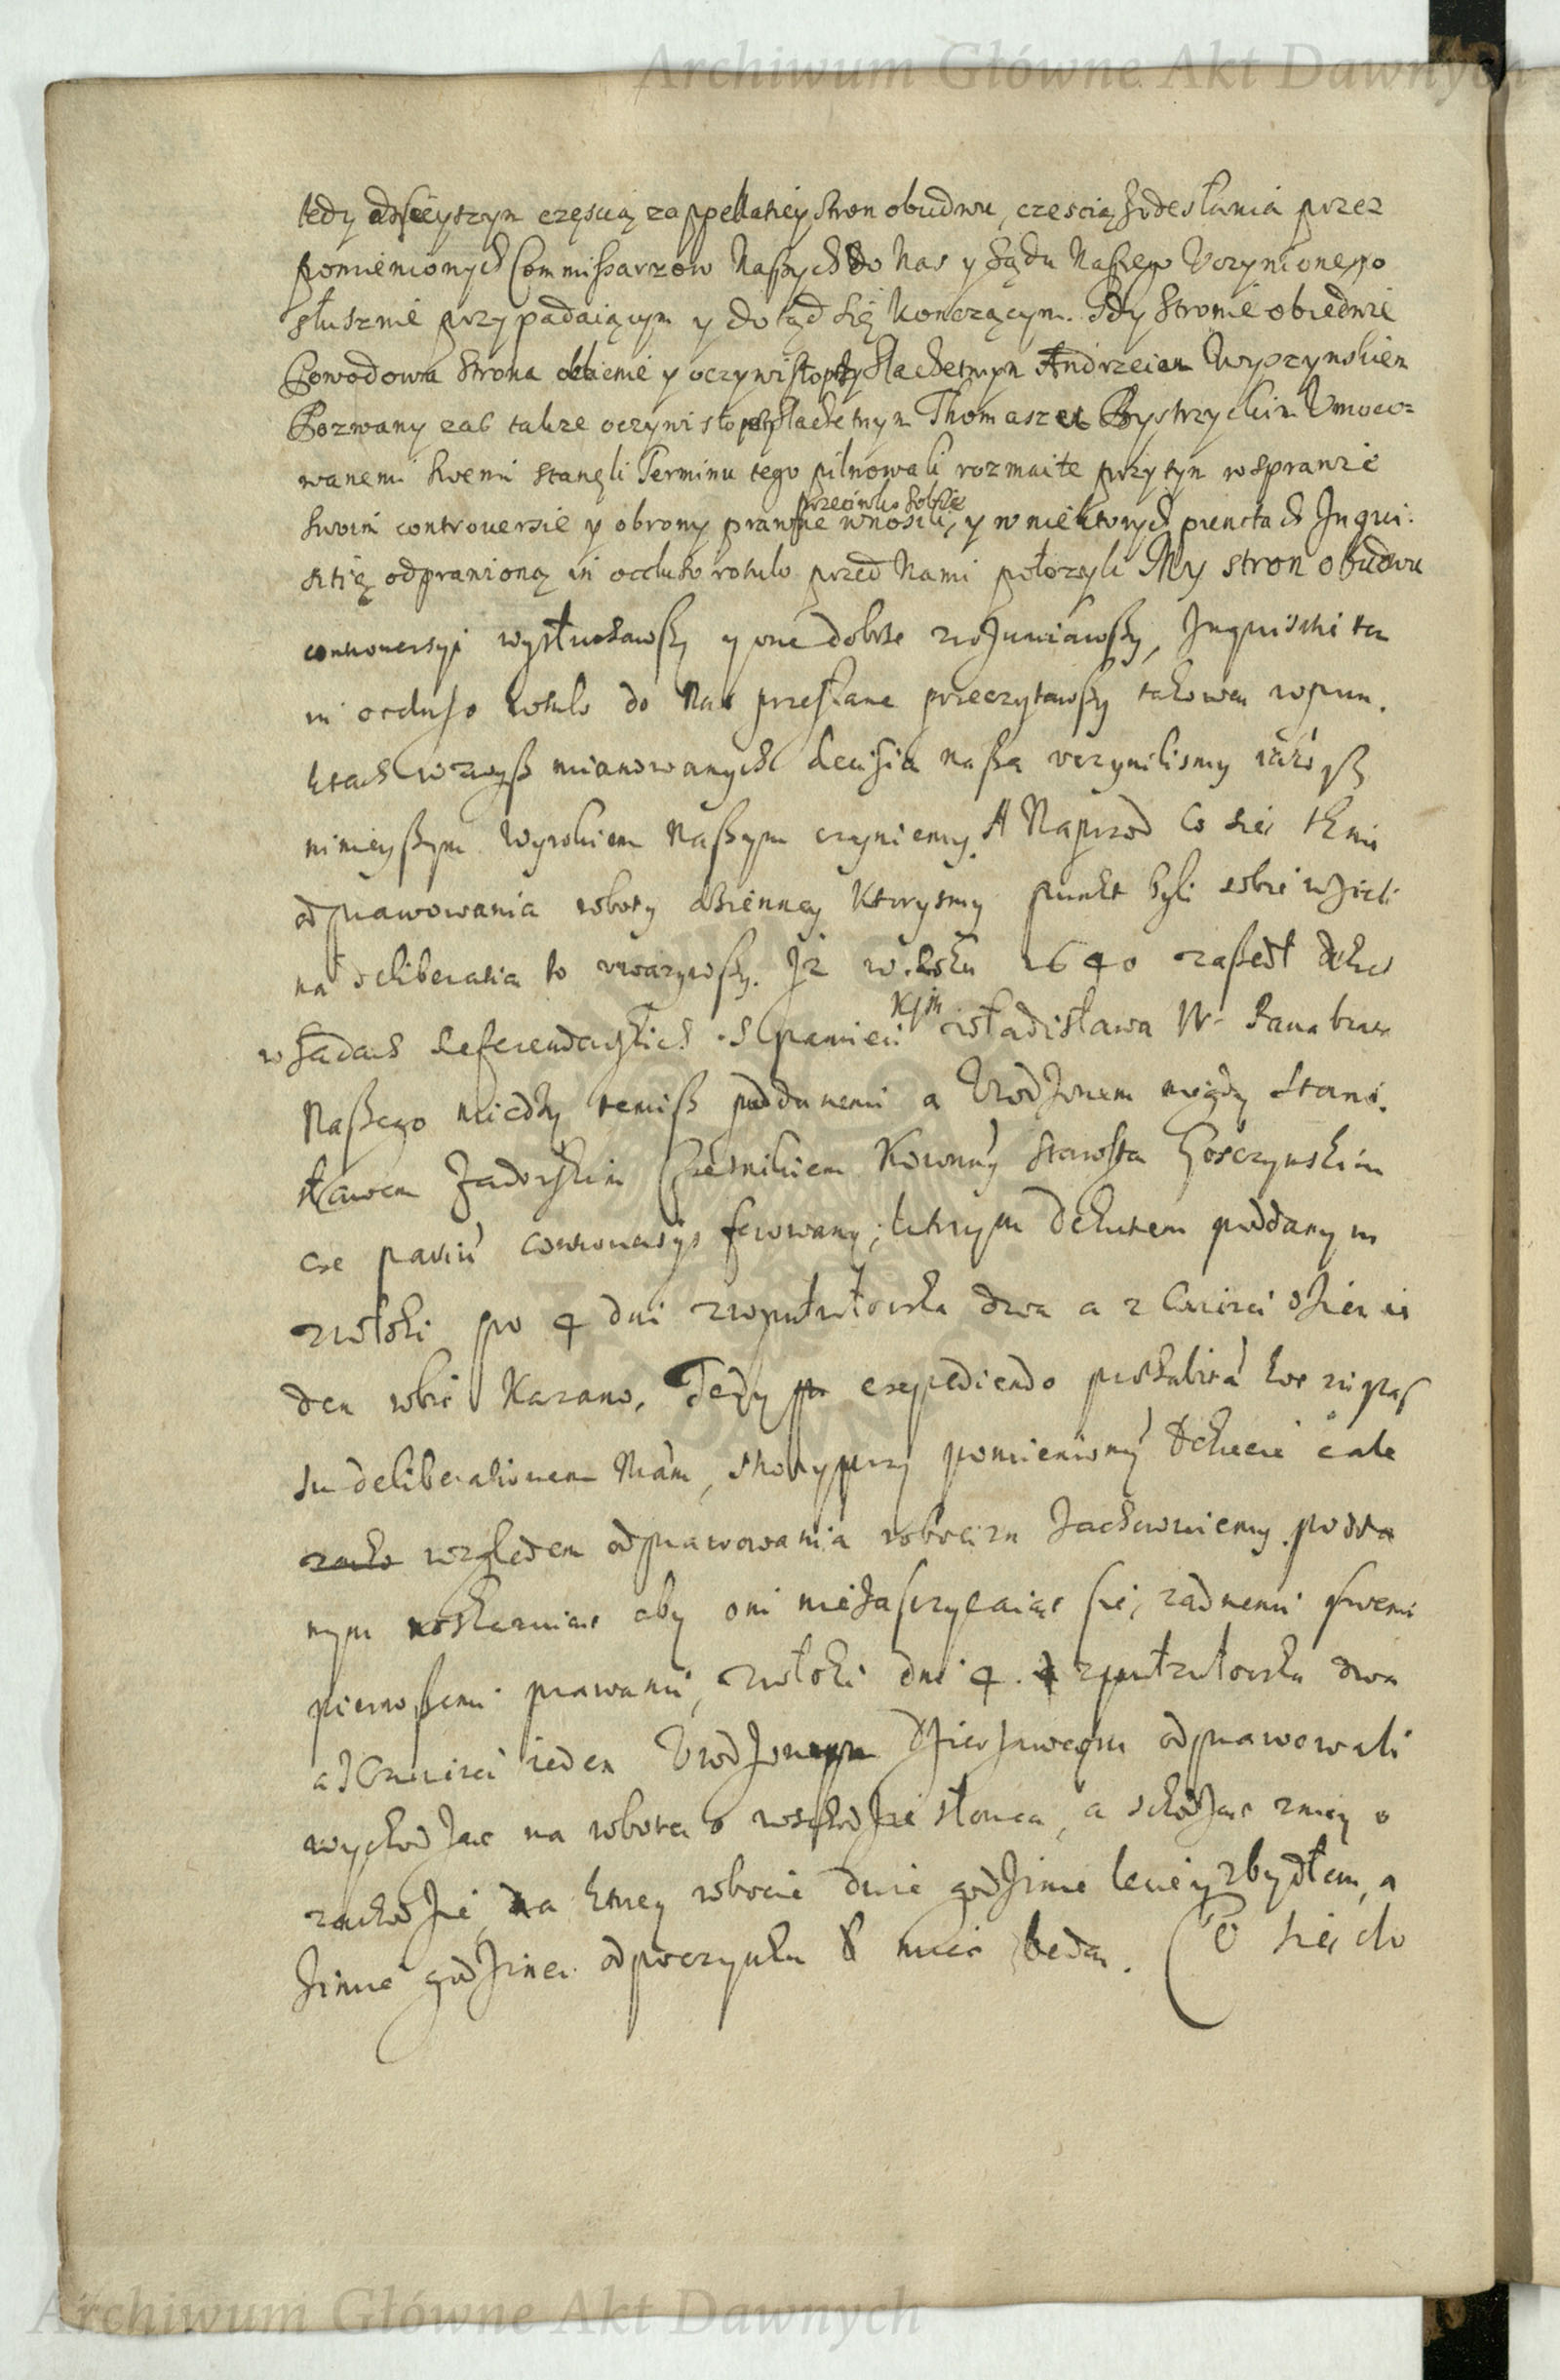 Archiwum Główne Akt Dawnych
tedy dzisieyszym częscią z appellatiey stron obudwu, częscią z odesłania przez
pomienionych Commissarzow Naszych do Nas y Sądu Naszego Uczynionego
słusznie przypadaiącym y dotąd się konczącym. Gdy Stronie obiedwie
Powodowa Strona obecnie y oczywisto przy Slachetnym Andrzeiem Wyszynskiem
Pozwany zas także oczywisto przy Slachetnym Thomaszem Bystrzyckim Umoco=
wanemi swemi stanęli Terminu tego pilnowali rozmaite przytym w sprawie
przeciwko sobie
swoiei controuersie y obrony prawne wnosili, y w niektorych punctach Inqui:
sitią odprawioną in occluso rotulo przed Nami położyli My stron obudwu
controuersyi wysłuchawszy y one dobrze zrozumiawszy, Inquisitią
in occluso rotulo do Nas przesłane przeczytawszy takowa w pun.
ktach wzwysz mianowanych decisia nasza uczynilismy iakosz
ninieyszym wyrokiem Naszym czyniemy. A Naprzod Co się tknie
odprawowania roboty dzienney ktorysmy punkt byli sobie wzieli
na deliberatia to uwazywszy. Iz w Roku 1640 zaszedł dekret
Kjm
w sadach Referendarskich S. pamieci Władisława IV. Pana brata
Naszego miedzy temisz poddanemi a Urodzonem niegdy Stani.
sławem Zadorskim Czesnikiem Rawskim Starosta Gosczynskim
ex partium controuersys ferowany, ktorym dekretem poddanym
z włoki po 4 dni z wputwłoczka dwa a z cwierci dzien ie
den robic kazano. Tedy expediendo
su deliberationem Nam, przy pomienionym dekrecie cale
wzgledem odprawowania robocizn zachowuiemy. podda
nym aby oni nie zasczycaiąc sie, zadnemi swemi
pierwszemi prawami, z włoki dni 4. z pułwłoczka dwa
a z Cwierci ieden Urodzonemu Dzierzawcy odprawowali
wychodząc na robota o wschodzie słonca, a schodząc z niey o
zachodzie, na ktorey robocie dwie godzinie leciey z bydłem, a
zimie godzine odpoczynku miec beda. Co się do
Archiwum Główne Akt Dawnych